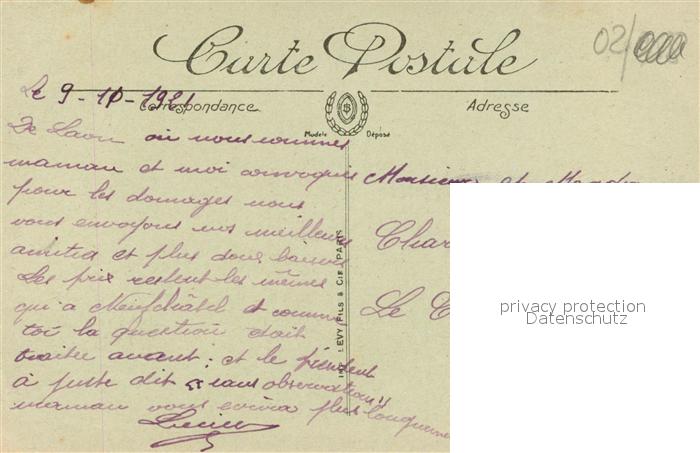 02/
Carte Postale
Le 9-10-1921
Correspondance
Adresse
Modèle Déposé
De Laon où nous sommes
maman et moi convoqués
pour les domages nous
vous envoyons nos meilleurs
amitia et plus doux baisers
Les prix restent les mêmes
qu'a Neufchâtel et comme
toi la question était
traiter avant : et le président
à juste dit "sans observations"
maman vous ecrira plus longuement
Lucien
LEVY FILS & CIE PARIS
Monsieur et
Char
Le
privacy protection
Datenschutz